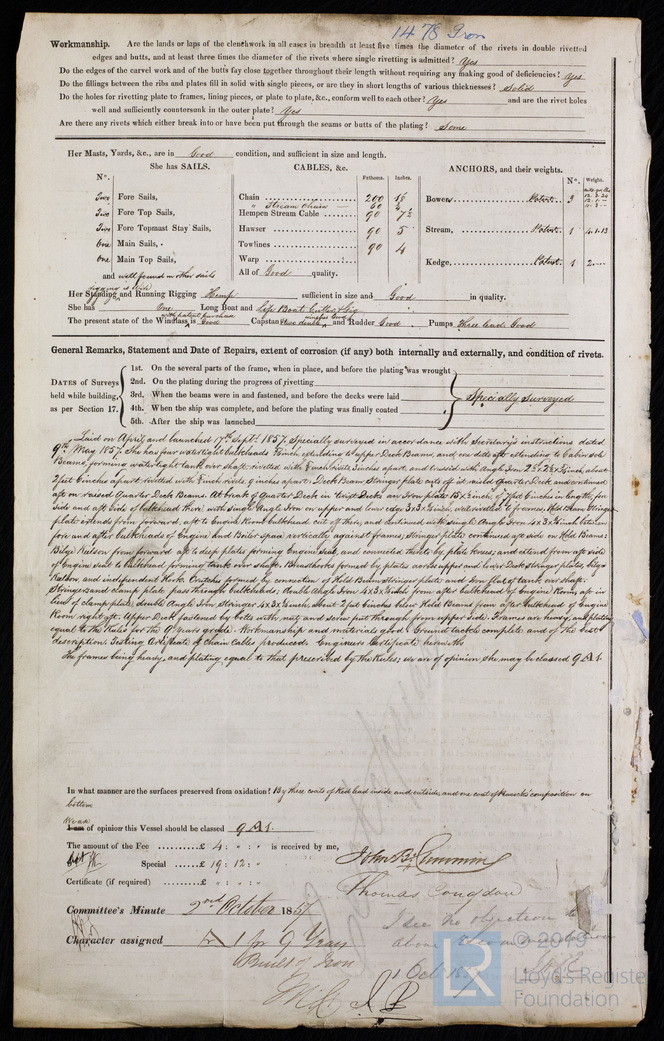 1478 Iron
Workmanship. Are the lands or laps of the clenchwork in all cases in breadth at least five times the diameter of the rivets in double rivetted
edges and butts, and at least three times the diameter of the rivets where single rivetting is admitted? Yes
Do the edges of the carvel work and of the butts fay close together throughout their length without requiring any making good of deficiencies? Yes
Do the fillings between the ribs and plates fill in solid with single pieces, or are they in short lengths of various thicknesses? Solid
Do the holes for rivetting plate to frames, lining pieces, or plate to plate, &c., conform well to each other? Yes and are the rivet holes
well and sufficiently countersunk in the outer plate? Yes
Are there any rivets which either break into or have been put through the seams or butts of the plating? Some
Her Masts, Yards, &c., are in Good condition, and sufficient in size and length.
She has SAILS. CABLES, &c. ANCHORS, and their weights.
N°. Fathoms. Inches. N°. Weight.
Two Fore Sails, Chain 200 Bowers Patent 3
" Stream Chain 60
Two Fore Top Sails, Hempen Stream Cable 90 7½
Two Fore Topmast Stay Sails, Hawser 90 5 Stream, Patent 1 4.1.13
One Main Sails, Towlines 90 4
One Main Top Sails, Warp Kedge, Patent 1 2
and well found in other sails All of Good quality.
rigging is Wire
Her Standing and Running Rigging Hemp sufficient in size and Good in quality.
She has One Long Boat and Life Boat Cutter & Gig
The present state of the Windlass is with patent purchase Good Capstan and Rudder Good Pumps three lead Good
General Remarks, Statement and Date of Repairs, extent of corrosion (if any) both internally and externally, and condition of rivets.
DATES of Surveys held while building, as per Section 17.
1st. On the several parts of the frame, when in place, and before the plating was wrought
2nd. On the plating during the progress of rivetting
3rd. When the beams were in and fastened, and before the decks were laid
4th. When the ship was complete, and before the plating was finally coated
5th. After the ship was launched
Specially Surveyed
Laid on April, and launched 17th Septr. 1857. Specially surveyed in accordance with Secretary's instructions dated
9th May 1857. She has four watertight bulkheads extending to upper Deck Beams, and one aft extending to Cabin sole
Beams, forming watertight tank over shaft, rivetted with rivets 3 inches apart, and braced with Angle Iron 2½x2½x inch, about
2 feet 6 inches apart, rivetted with rivets 9 inches apart. Deck Beam Stringer plate cuts off at raised quarter Deck and continued
aft on raised Quarter Deck Beams. At break of Quarter Deck in 'twixt Decks an Iron plate 15x½ inch, of 7 feet 6 inches in length, fore
side and aft side of bulkhead there, with single Angle Iron on upper and lower edge, well rivetted to frames. Hold Beam Stringer
plate extends from forward, aft to Engine Room bulkhead cut off there, and continued with single Angle Iron 4x3x inch between
fore and after bulkheads of Engine and Boiler space vertically against frames; stringer plate continued aft side on Hold Beams:
Bilge Kelson from forward aft to deep plates forming Engine seat, and connected thereto by plate knees; and extend from aft side
of Engine seat to bulkhead forming tank over shaft. Breasthooks formed by plates across upper and lower Deck Stringer plates, bilge
Kelson, and independent Hooks. Crutches formed by connection of Hold Beam Stringer plate and Iron flat of tank over shaft.
Stringers and clamp plate pass through bulkheads; double Angle Iron 4x3x inch from after bulkhead of Engine Room, aft in
lieu of clamp plate, double Angle Iron Stringer 4x3x inch, about 2 feet 6 inches below Hold Beams from after bulkhead of Engine
Room right aft. Upper Deck fastened by bolts with nut and screw put through from upper side. Frames are heavy, and plating
equal to the Rules for the 9 years grade. Workmanship and materials good. Ground tackle complete and of the best
description. Testing Certificate of Chain Cables produced. Engineers Certificate herewith.
The frames being heavy, and plating equal to that prescribed by the Rules; we are of opinion she may be classed 9 A1.
In what manner are the surfaces preserved from oxidation? By three coats of Red lead inside and outside, and one coat of Peacock's composition on
bottom
We are
I am of opinion this Vessel should be classed 9 A1.
The amount of the Fee £ 4 : " : " is received by me,
Special £ 19 : 12 : " John B. Cumming
Certificate (if required) £ " : " : " Thomas Congdon
Committee's Minute 2nd October 1857
I see no objection to
above recommendation
Character assigned A 1 for 9 Years
Built of Iron
1 Oct 1857
© 2019
LR
Lloyd's Register
Foundation